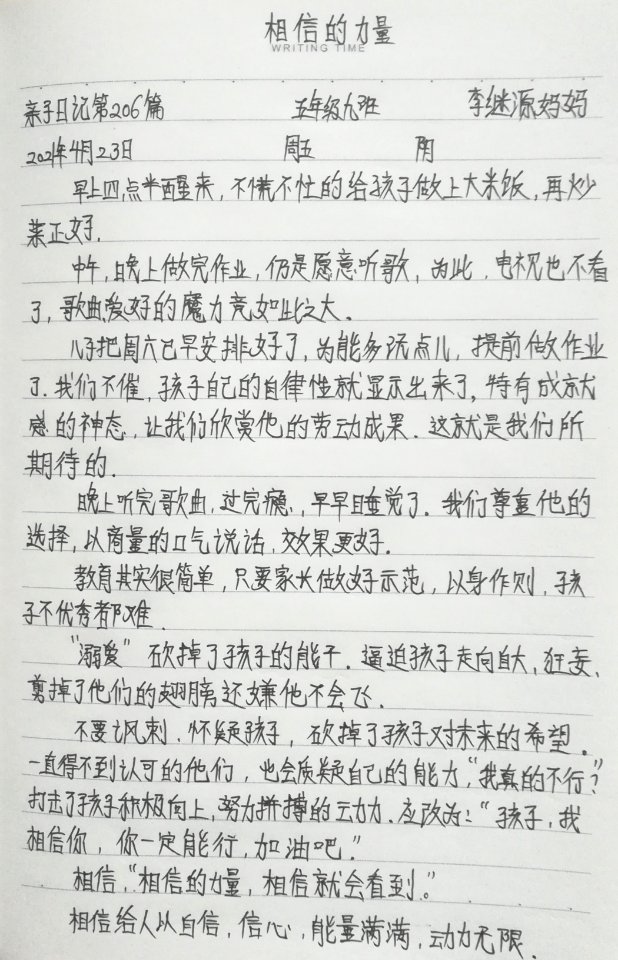 相信的力量
WRITING TIME
亲子日记第206篇 五年级九班 李继源妈妈
2021年4月23日 周五 阴
早上四点半醒来，不慌不忙的给孩子做上大米饭，再炒
菜正好。
中午，晚上做完作业，仍是愿意听歌，为此，电视也不看
了，歌曲爱好的魔力竟如此之大。
儿子把周六已早安排好了，为能多玩点儿，提前做作业
了。我们不催，孩子自己的自律性就显示出来了，特有成就
感的神态，让我们欣赏他的劳动成果。这就是我们所
期待的。
晚上听完歌曲，过完瘾，早早睡觉了。我们尊重他的
选择，以商量的口气说话，效果更好。
教育其实很简单，只要家长做好示范，以身作则，孩
子不优秀都难。
“溺爱”砍掉了孩子的能干。逼迫孩子走向自大，狂妄，
剪掉了他们的翅膀还嫌他不会飞。
不要讽刺、怀疑孩子，砍掉了孩子对未来的希望。
一直得不到认可的他们，也会质疑自己的能力，“我真的不行？”
打击了孩子积极向上，努力拼搏的动力。应改为：“孩子，我
相信你，你一定能行，加油吧。”
相信，“相信的力量，相信就会看到。”
相信给人以自信，信心，能量满满，动力无限。